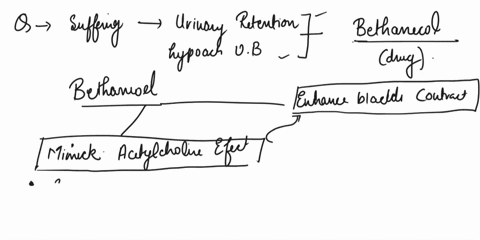 Q → Suffering → Urinary Retention
hypoach U.B
Bethanecol
(drug).
Bethanoel
Enhance bladde Contract
Mimick Acetylcholine Effect